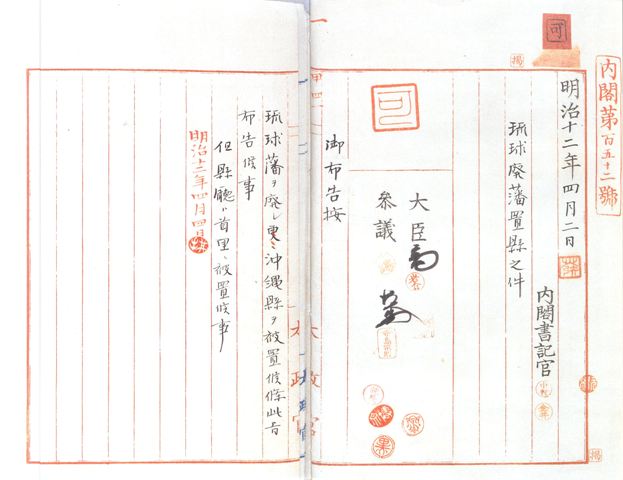 可
内閣第百五十二號
明治十二年四月二日
内閣書記官
琉球廃藩置縣之件
可
大臣
参議
御布告按
琉球藩ヲ廃シ更ニ沖縄縣ヲ被置候條此旨
布告候事
但縣廳ハ首里ニ被置候事
明治十二年四月四日
太政官